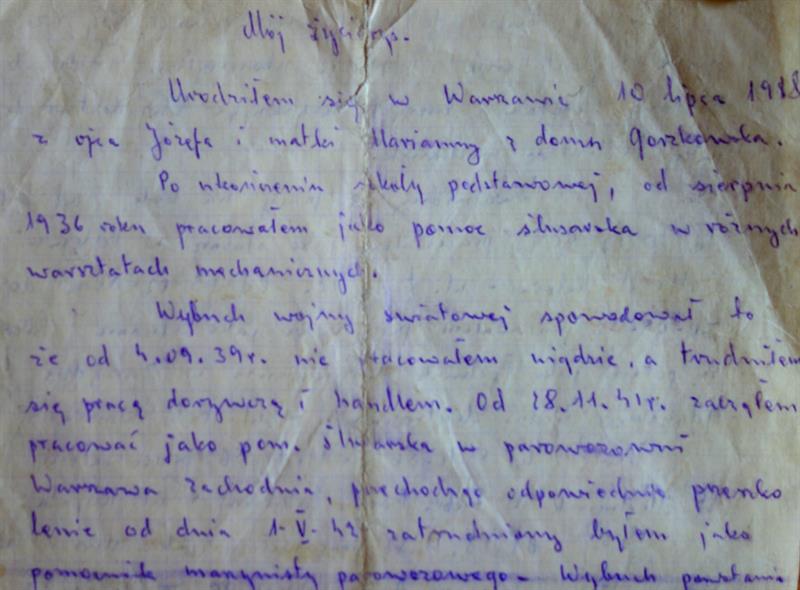 Mój życiorys.
Urodziłem się w Warszawie 10 lipca
z ojca Józefa i matki Marianny z domu Goszkowska.
Po ukończeniu szkoły podstawowej, od sierpnia
1936 roku pracowałem jako pomoc ślusarska w różnych
warsztatach mechanicznych.
Wybuch wojny światowej spowodował to
że od 4.09.39r. nie pracowałem nigdzie, a trudniłem
się pracą dorywczą i handlem. Od 28.11.41r. zacząłem
pracować jako pom. ślusarska w parowozowni
Warszawa Zachodnia, przechodząc odpowiednie przeszko
lenie od dnia 1-V-42 zatrudniony byłem jako
pomocnik maszynisty parowozowego. Wybuch powstania